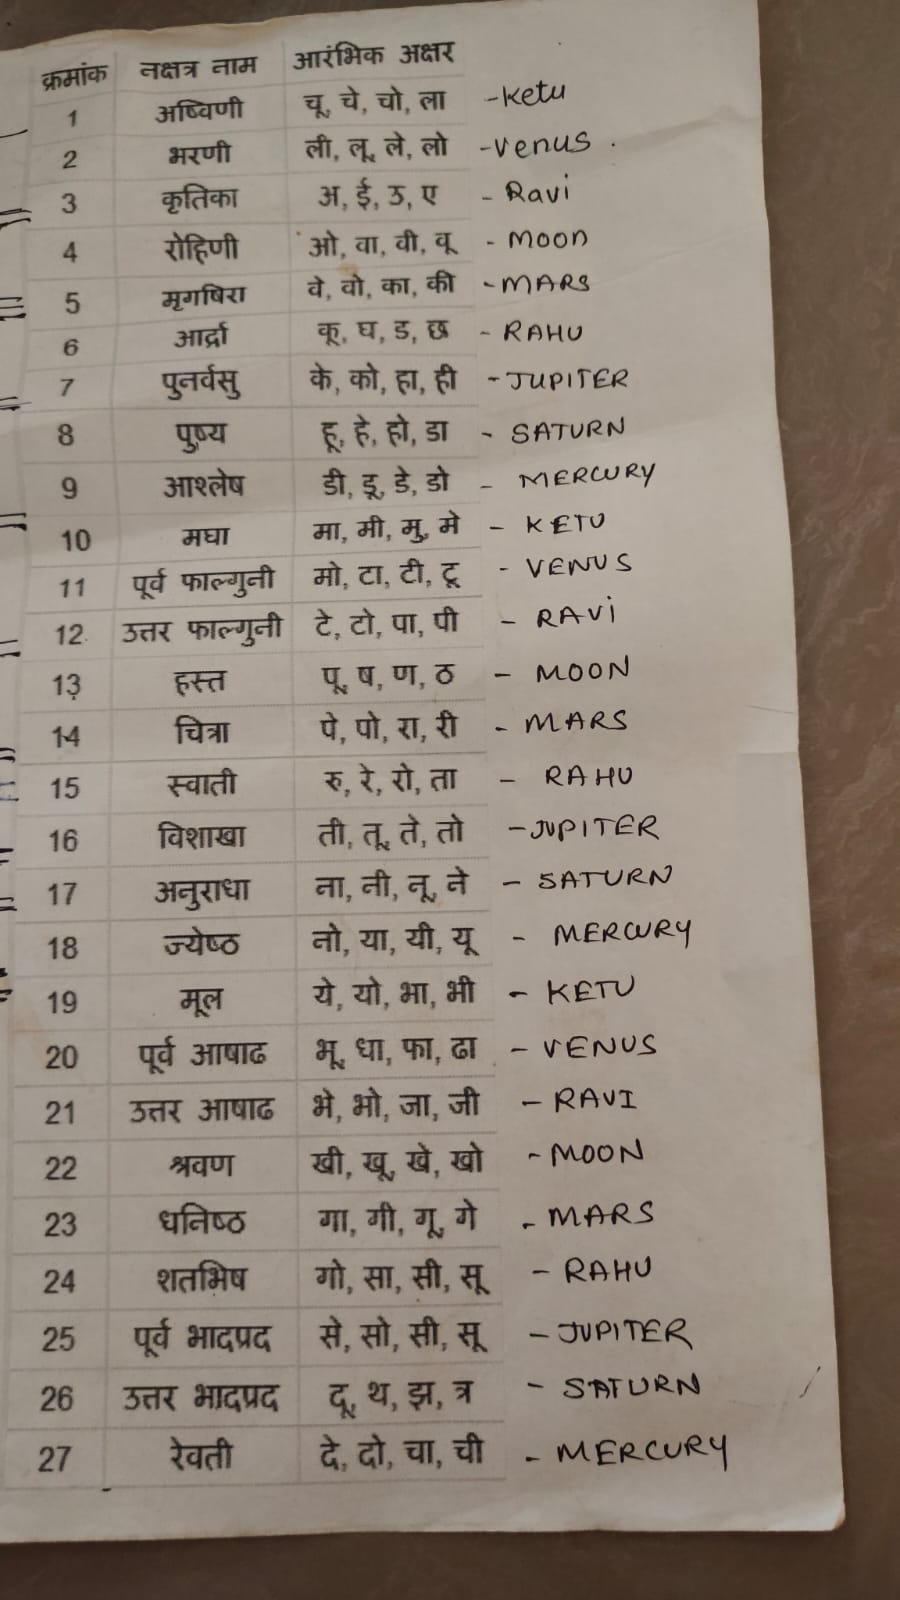 क्रमांक नक्षत्र नाम आरंभिक अक्षर
1 अष्विणी चू, चे, चो, ला -Ketu
2 भरणी ली, लू, ले, लो -Venus.
3 कृतिका अ, ई, उ, ए - Ravi
4 रोहिणी ओ, वा, वी, वू - Moon
5 मृगषिरा वे, वो, का, की - MARS
6 आर्द्रा कू, घ, ड, छ - RAHU
7 पुनर्वसु के, को, हा, ही - JUPITER
8 पुष्य हू, हे, हो, डा - SATURN
9 आश्लेष डी, डू, डे, डो - MERCURY
10 मघा मा, मी, मु, मे - KETU
11 पूर्व फाल्गुनी मो, टा, टी, टू - VENUS
12 उत्तर फाल्गुनी टे, टो, पा, पी - RAVi
13 हस्त पू, ष, ण, ठ - MOON
14 चित्रा पे, पो, रा, री - MARS
15 स्वाती रु, रे, रो, ता - RAHU
16 विशाखा ती, तू, ते, तो -JUPITER
17 अनुराधा ना, नी, नू, ने - SATURN
18 ज्येष्ठ नो, या, यी, यू - MERCURY
19 मूल ये, यो, भा, भी - KETU
20 पूर्व आषाढ भू, धा, फा, ढा - VENUS
21 उत्तर आषाढ भे, भो, जा, जी - RAVI
22 श्रवण खी, खू, खे, खो - MOON
23 धनिष्ठ गा, गी, गू, गे - MARS
24 शतभिष गो, सा, सी, सू - RAHU
25 पूर्व भादप्रद से, सो, सी, सू - JUPITER
26 उत्तर भादप्रद दू, थ, झ, त्र - SATURN
27 रेवती दे, दो, चा, ची - MERCURY